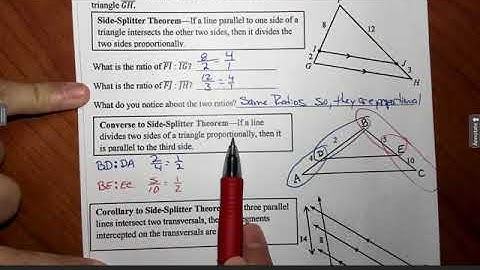 triangle GH.
Side-Splitter Theorem—If a line parallel to one side of a
triangle intersects the other two sides, then it divides the
two sides proportionally.
What is the ratio of FI : IG? 8/2 = 4/1
What is the ratio of FJ : JH? 12/3 = 4/1
What do you notice about the two ratios? Same Ratios so, they are proportional
Converse to Side-Splitter Theorem—If a line
divides two sides of a triangle proportionally, then it
is parallel to the third side.
BD:DA 2/4 = 1/2
BE:EC 5/10 = 1/2
Corollary to Side-Splitter three parallel
lines intersect two transversals, the segments
intercepted on the transversals are
8
12
I
2
G
J
3
H
B
2
D
4
A
E
10
C
14